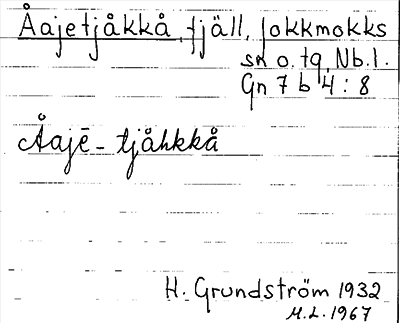 Åajetjåkkå, fjäll, Jokkmokks
sn o. tg, Nb. l.
Gn 7 b 4 : 8
Åajē - tjåhkkå
H. Grundström 1932
M.L. 1967